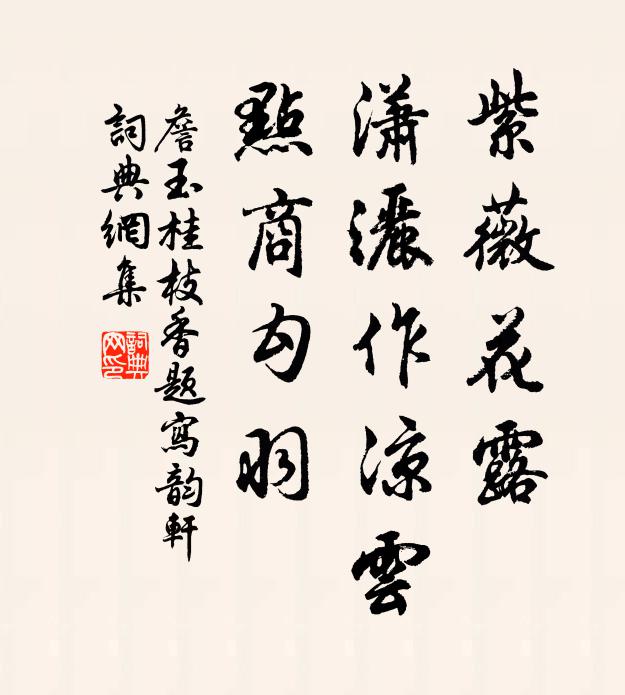 紫薇花露
瀟灑作凉雲
點商勾羽
詹玉桂枝香题寫韵軒
詞典網集
詞典网印